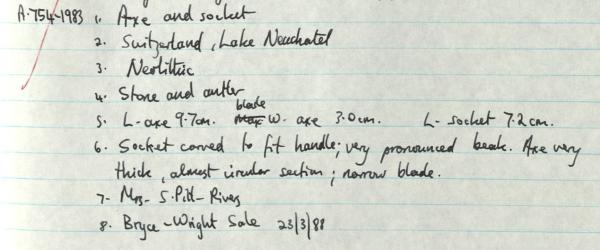 A.754-1983 1. Axe and socket
2. Switzerland, Lake Neuchatel
3. Neolithic
4. Stone and antler
5. L- axe 9.7cm. blade W. axe 3.0cm. L- socket 7.2cm.
6. Socket carved to fit handle; very pronounced beak. Axe very
thick, almost circular section; narrow blade.
7- Mrs- S. Pitt-Rivers
8. Bryce-Wright Sale 23/3/88